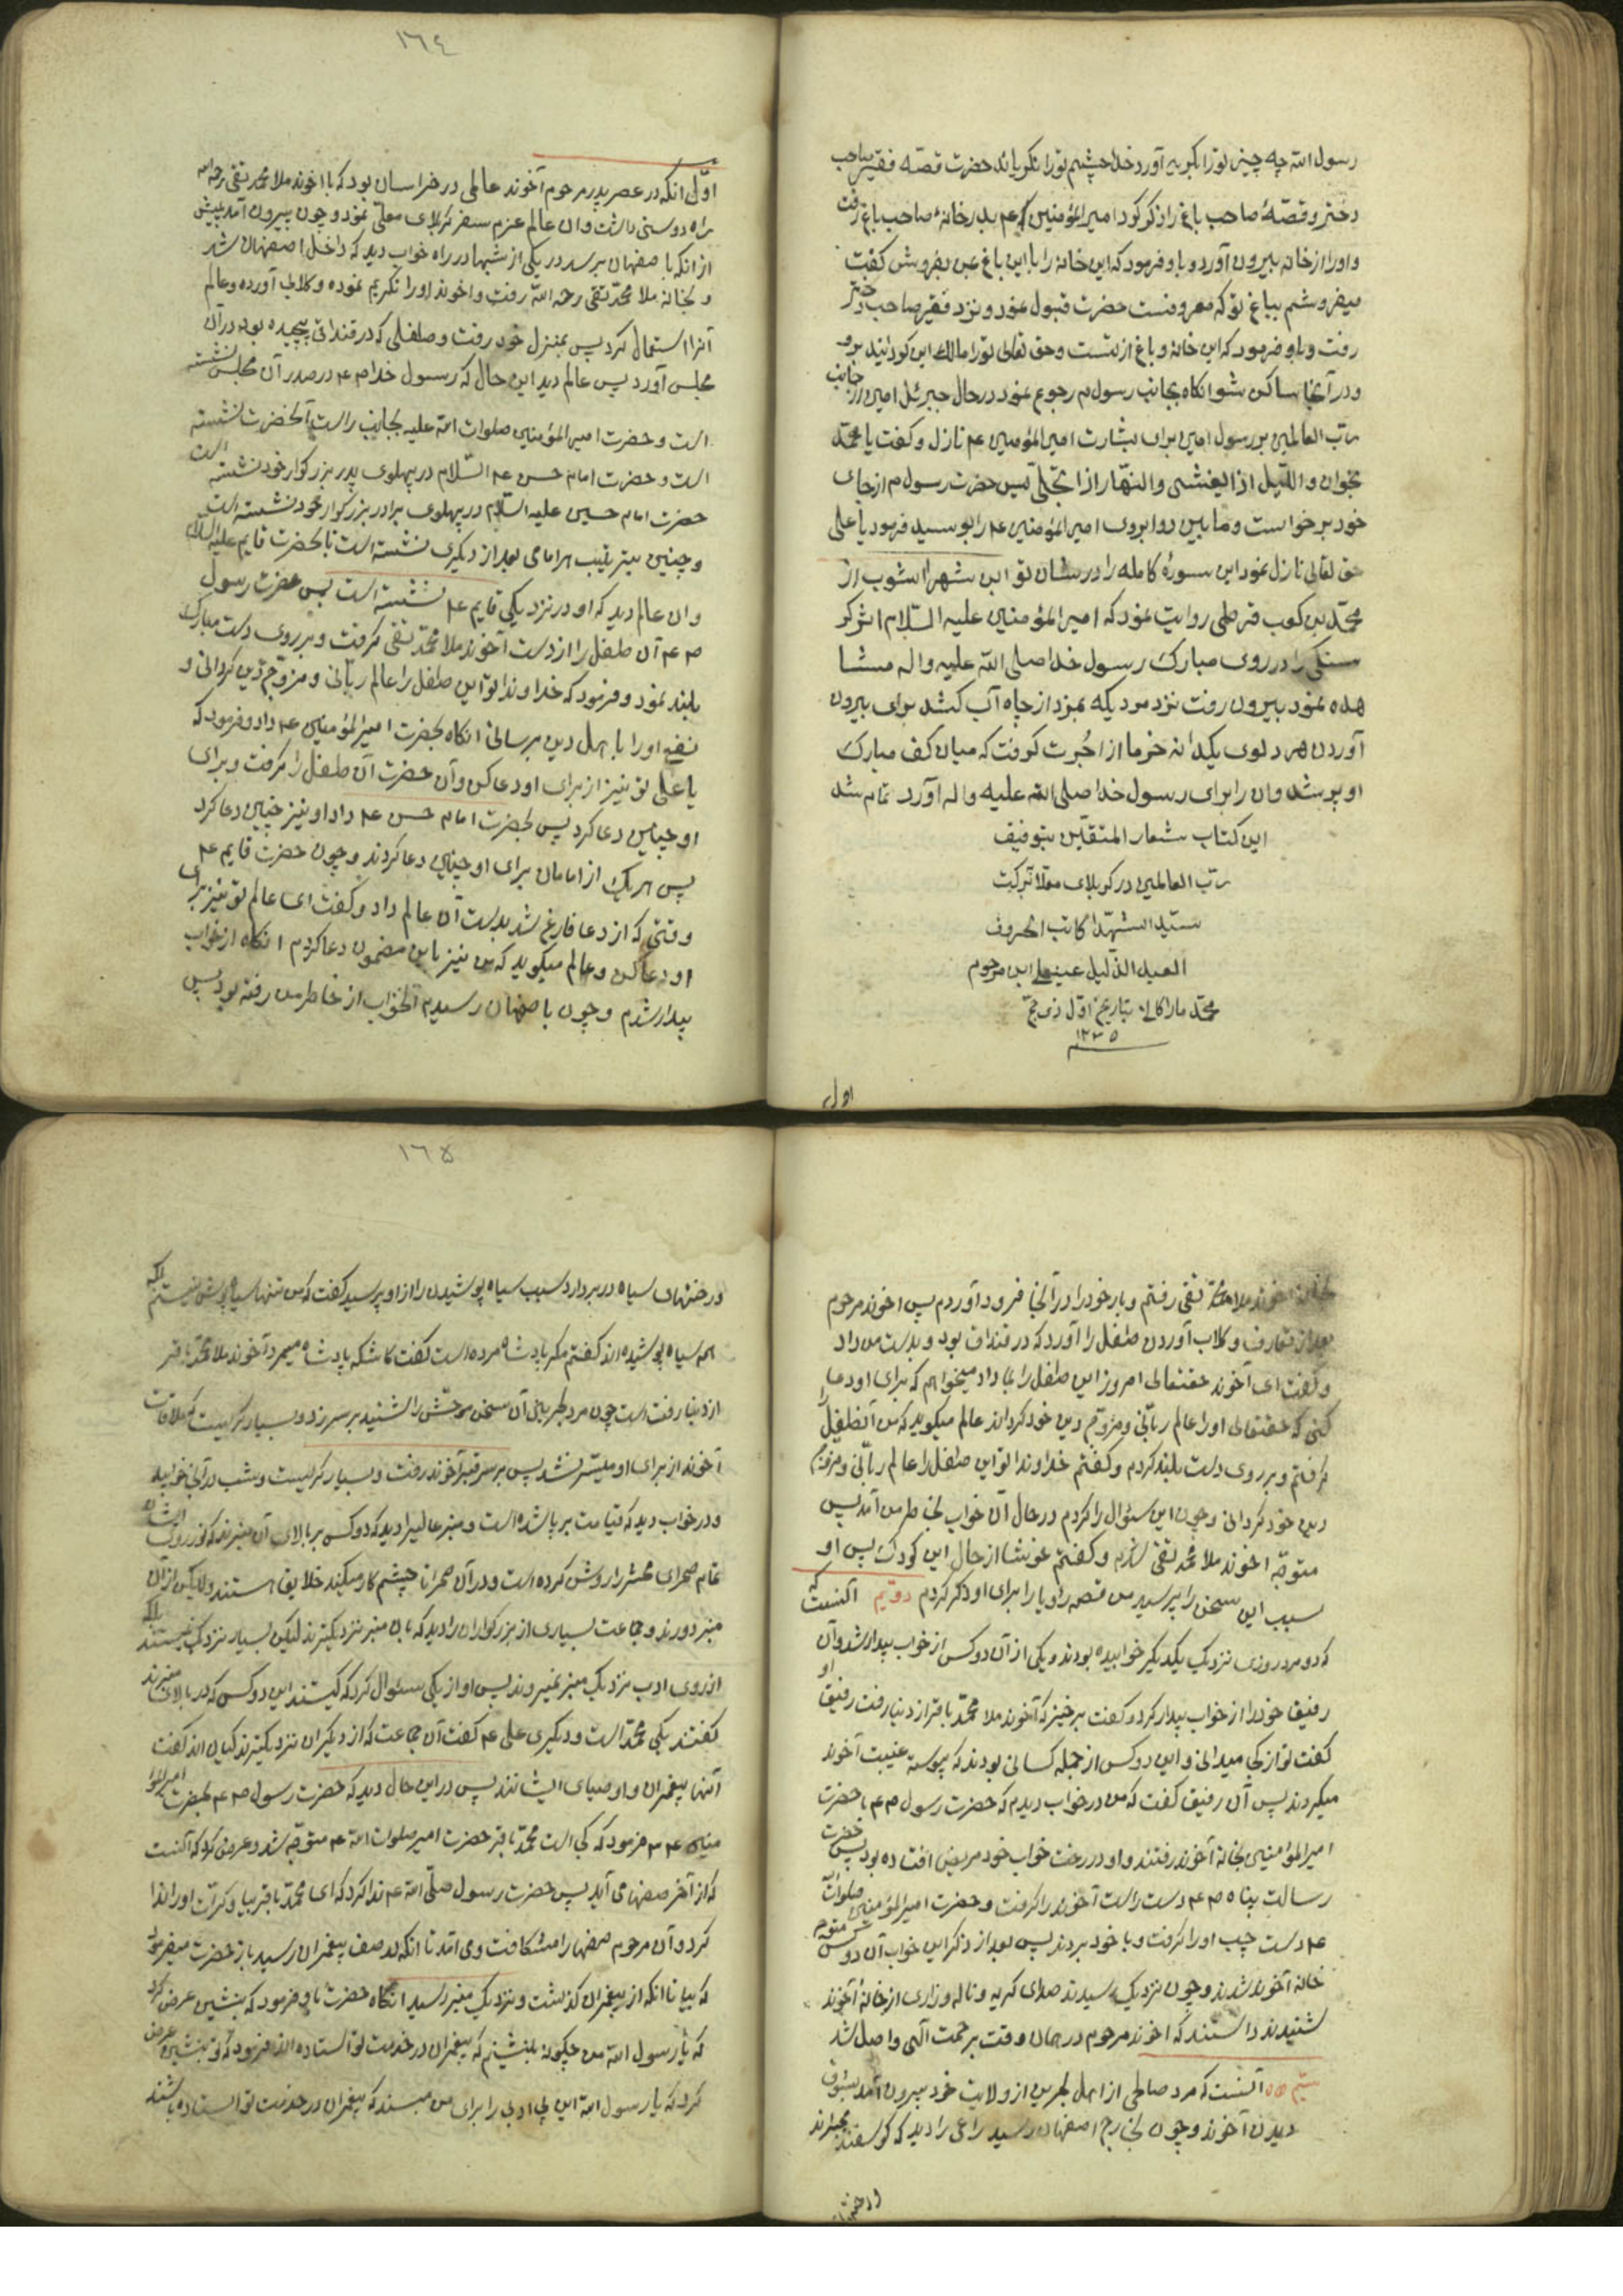 رسول الله چه چیز تو را بگریه آورد خدا چشم تو را نگریاند حضرت قصّه فقیر صاحب
دختر و قصّهٔ صاحب باغ را ذکر کرد امیرالمؤمنین ع بدر خانهٔ صاحب باغ رفت
و او را از خانه بیرون آورد و باو فرمود که این خانه را باین باغ بمن بفروش گفت
میفروشم بباغ تو که معروفست حضرت قبول نمود و نزد فقیر صاحب دختر
رفت و باو فرمود که این خانه و باغ از تست و حق تعالی تو را مالک این گردانید برو
و در آنجا ساکن شو انکاه بجانب رسول ص رجوع نمود در حال جبرئل امین از جانب
ربّ العالمین بر رسول امین برای بشارت امیرالمؤمنین ع نازل و گفت یا محمّد
بخوان و اللّیل اذا یغشی والنهّار اذا تجلّی پس حضرت رسول ص از جای
خود برخواست و مابین دو ابروی امیرالمؤمنین ع را بوسید فرمود یا علی
حق تعالی نازل نمود این سورهٔ کامله را در شان تو ابن شهراشوب از
محمّد بن کعب قرظی روایت نمود که امیرالمؤمنین علیه السّلام اثر گر
سنگی را در روی مبارک رسول خدا صلی الله علیه واله مشا
هده نمود بیرون رفت نزد مردیکه بمزد از چاه آب کشد برای بیرون
آوردن هر دلوی یکدانه خرما از اجُرت گرفت که میان کف مبارک
او پر شد وان را برای رسول خدا صلی الله علیه واله آورد تمام شد
این کتاب شعار المتقّین بتوفیق
ربّ العالمین در کربلای معلّا تبرکت
سیّد الشهدّا کاتب الحروف
العبد الذلیل عینعلی ابن مرحوم
محمّد ماراکالا بتاریخ اوّل ذی حجّ
۱۲۳۵
اول
١٦٤
اوّل انکه در عصر پدر مرحوم آخوند عالمی در خراسان بود که با اخوند ملا محمّد تقی رحمه الله
راه دوستی داشت وان عالم عزم سفر کربلای معلّی نمود و چون بیرون آمد پیش
از انکه باصفهان برسد در یکی از شبها در راه خواب دید که داخل اصفهان شد
و بخانه ملا محمّد تقی رحمه اللّه رفت و اخوند او را تکریم نموده و کلابی آورده وعالم
آنرا استعمال کرد پس بمنزل خود رفت و طفلی که در قنداقی پیچیده بود در آن
مجلس آورد پس عالم دید این حال که رسول خدا ص ع در صدر آن مجلس نشسته
است و حضرت امیرالمؤمنین صلوات الله علیه بجانب راست آنحضرت نشسته
است و حضرت امام حسن ع السّلام در پهلوی پدر بزرکوار خود نشسته است
حضرت امام حسین علیه السلام در پهلوی برادر بزرکوار خود نشسته است
و چنین بترتیب هر امامی بعد از دیکری نشسته است تا حضرت قایم علیه السلام
وان عالم دید که او در نزدیکی قایم ع نشسته است پس حضرت رسول
ص ع آن طفل را از دست آخوند ملا محمّد تقی گرفت و بر روی دست مبارک
بلند نمود و فرمود که خداوندا تو این طفل را عالم ربّانی و مروّج دین کردانی و
نفع او را باهل دین برسانی انکاه بحضرت امیرالمؤمنین ع داد و فرمود که
یا علی تو نیز از برای او دعا کن وآن حضرت آن طفل را گرفت و برای
او چنین دعا کرد پس بحضرت امام حسن ع داد او نیز چنین دعا کرد
پس هریک از امامان برای او چنین دعا کردند و چون حضرت قایم ع
وقتی که از دعا فارغ شد بدست آن عالم داد و گفت ای عالم تو نیز برای
او دعا کن و عالم میکوید که من نیز باین مضمون دعا کردم انکاه از خواب
بیدار شدم و چون باصفهان رسیدم آنخواب از خاطر من رفته بود پس
بخانه اخوند ملا محمّد تقی رفتم و بار خود را در آنجا فرود آوردم پس اخوند مرحوم
بعد از تعارف و کلاب آوردن طفل را آورد که در قنداق بود و بدست من داد
و گفت ای آخوند حقتعالی امروز این طفل را بما داد میخواهم که برای او دعا
کنی که حقتعالی او را عالم ربّانی و مروّج دین خود کرداند عالم میکوید که من آنطفل را
گرفتم و بر روی دست بلند کردم و گفتم خداوندا تو این طفل را عالم ربّانی و مروّج
دین خود کردانی و چون این سئوال را کردم در حال آن خواب بخاطر من آمد پس
متوجّه اخوند ملا محمّد تقی شدم و گفتم خوشا از حال این کودک پس او
سبب این سخن را پرسید من قصهٔ رؤیا را برای او ذکر کردم دوّیم انست که
که دو مرد روزی نزدیک یکدیگر خوابیده بودند و یکی از آن دو کس از خواب بیدار شد وآن
رفیق خود را از خواب بیدار کرد و گفت برخیز که آخوند ملا محمّد باقر از دنیا رفت رفیق او
گفت تو از کجا میدانی و این دو کس از جمله کسانی بودند که پیوسته غیبت آخوند
میکردند پس آن رفیق گفت که من در خواب دیدم که حضرت رسول ص ع با حضرت
امیرالمؤمنین بخانهٔ آخوند رفتند و او در رخت خواب خود مریض افتاده بود پس حضرت
رسالت پناه ص ع دست راست آخوند را گرفت و حضرت امیرالمؤمنین صلوات
ع دست چپ او را گرفت و با خود بردند پس بعد از ذکر این خواب آن دو کس متوجه
خانهٔ آخوند شدند و چون نزدیک رسیدند صدای گریه و ناله و زاری از خانهٔ آخوند
شنیدند دانستند که اخوند مرحوم در همان وقت برحمت الهی واصل شد
سیّم آنست که مرد صالحی از اهل بحرین از ولایت خود بیرون آمد بشوق
دیدن آخوند و چون بخارج اصفهان رسید راعی را دید که کوسفند میچراند
و رختهای
١٦٥
و رختهای سیاه در بر دارد سبب سیاه پوشیدن را از او پرسید گفت که من تنها سیاه پوش نیستم بلکه
همه سیاه پوشیده اند گفتم مکر پادشاه مرده است گفت کاشکه پادشاه میمرد آخوند ملا محمّد باقر
از دنیا رفته است چون مرد بحرینی آن سخن موحّش را شنید بر سر زد و بسیار گریست که ملاقات
آخوند از برای او میّسر نشد پس بر سر قبر آخوند رفت و بسیار گریست و شب در آنجا خوابید
و در خواب دید که قیامت برپا شده است و منبر عالی را دید که دو کس بر بالای آن منبرند که نور روی ایشان
تمام صحرای محشر را روشن کرده است و در آن صحرا تا چشم کار میکند خلایق هستند ولیکن از آن
منبر دورند و جماعت بسیاری از بزرکواران را دید که بان منبر نزدیکترند لیکن بسیار نزدیک نیستند بلکه
از روی ادب نزدیک منبر نمیروند پس او از یکی سئوال کرد که کیستند این دو کس که در بالای منبرند
گفتند یکی محمّد است و دیگری علی ع گفت آن جماعت که از دیکران نزدیکترند کیان اند گفت
آنها پیغمبران و اوصیای ایشانند پس در این حال دید که حضرت رسول ص ع بحضرت امیرالمؤ
منین ع فرمود که کجا است محمّد باقر حضرت امیر صلوات الله ع متوجّه شد و عرض کرد که آنست
که از آخر صفها می آید پس حضرت رسول صلّی الله ع ندا کرد که ای محمّد باقر بیا و کرّات او را ندا
کرد و آن مرحوم صفها را میشکافت و می آمد تا انکه بصف پیغمبران رسید باز حضرت میفرمود
که بیا تا انکه از پیغمبران گذشت و نزدیک منبر رسید انگاه حضرت باو فرمود که بنشین عرض کرد
که یا رسول الله من چگونه بنشینم که پیغمبران در خدمت تو ایستاده اند فرمود که تو بنشین عرض
کرد که یا رسول الله این بی ادبی را برای من مپسند که پیغمبران در خدمت تو ایستاده باشند